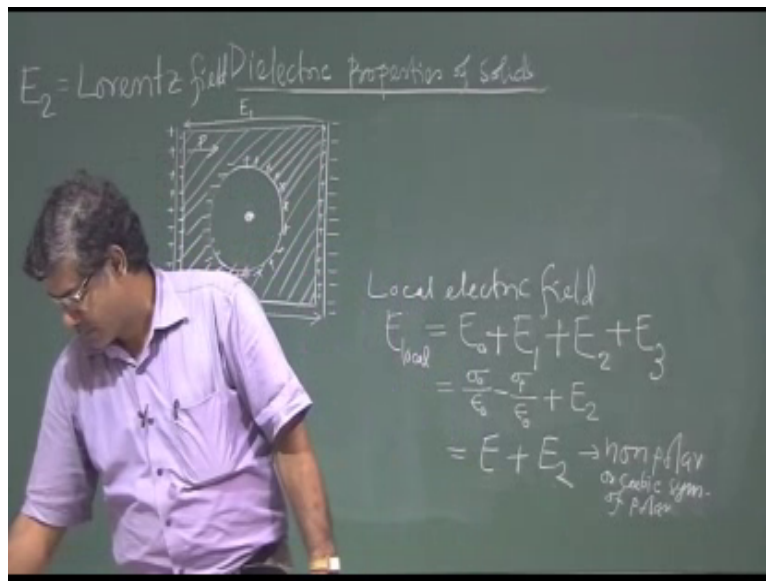 E₂ = Lorentz field Dielectric Properties of Solids
E₁
P
Local electric field
E_local = E₀ + E₁ + E₂ + E₃
= σ₀/ε₀ - σ_P/ε₀ + E₂
= E + E₂ → nonpolar
or cubic sym.
of polar